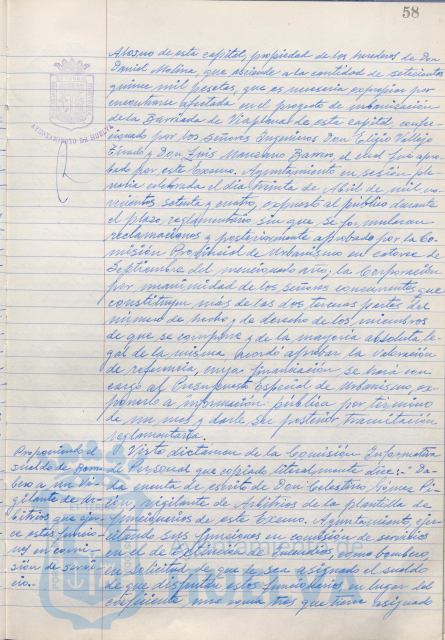 58
Alosno de esta capital, propiedad de los herederos de Don
Daniel Molina, que asciende a la cantidad de setecientas
quince mil pesetas, que es necesario expropiar por
encontrarse afectada en el proyecto de urbanización
de la Barriada de Viaplana de esta capital, confec-
cionado por los señores Ingenieros Don Eligio Vallejo
y Don Luis Manzano Barrero, el cual fue apro-
bado por este Excmo. Ayuntamiento en sesión ple-
naria celebrada el día treinta de Abril de mil no-
vecientos setenta y cuatro, expuesto al público durante
el plazo reglamentario sin que se formularan
reclamaciones y posteriormente aprobado por la Co-
misión Provincial de Urbanismo en catorce de
Septiembre del mencionado año, la Corporación
por unanimidad de los señores concurrentes, que
constituyen más de las dos terceras partes del
número de hecho y de derecho de los miembros
de que se compone y de la mayoría absoluta le-
gal de la misma, acordó aprobar la valoración
de referencia, cuya financiación se hará con
cargo al Presupuesto Especial de Urbanismo, ex-
ponerlo a información pública por término
de un mes y darle su posterior tramitación
reglamentaria.
AYUNTAMIENTO DE HUELVA
Proponiendo el
sueldo de Bom-
bero a un Vi-
gilante de Ar-
bitrios que ejer-
ce estas funcio-
nes en comi-
sión de servi-
cio.
Visto dictámen de la Comisión Informativa
de Personal que copiado literalmente dice: - "Da-
da cuenta de escrito de Don Celestino
vigilante de Arbitrios de la plantilla de
funcionarios de este Excmo. Ayuntamiento, ejer-
citando sus funciones en comisión de servicios
en el de Extinción de Incendios, como bombero,
en solicitud de que le sea asignado el sueldo
de que disfrutan estos funcionarios en lugar del
coeficiente uno coma tres que tiene asignado